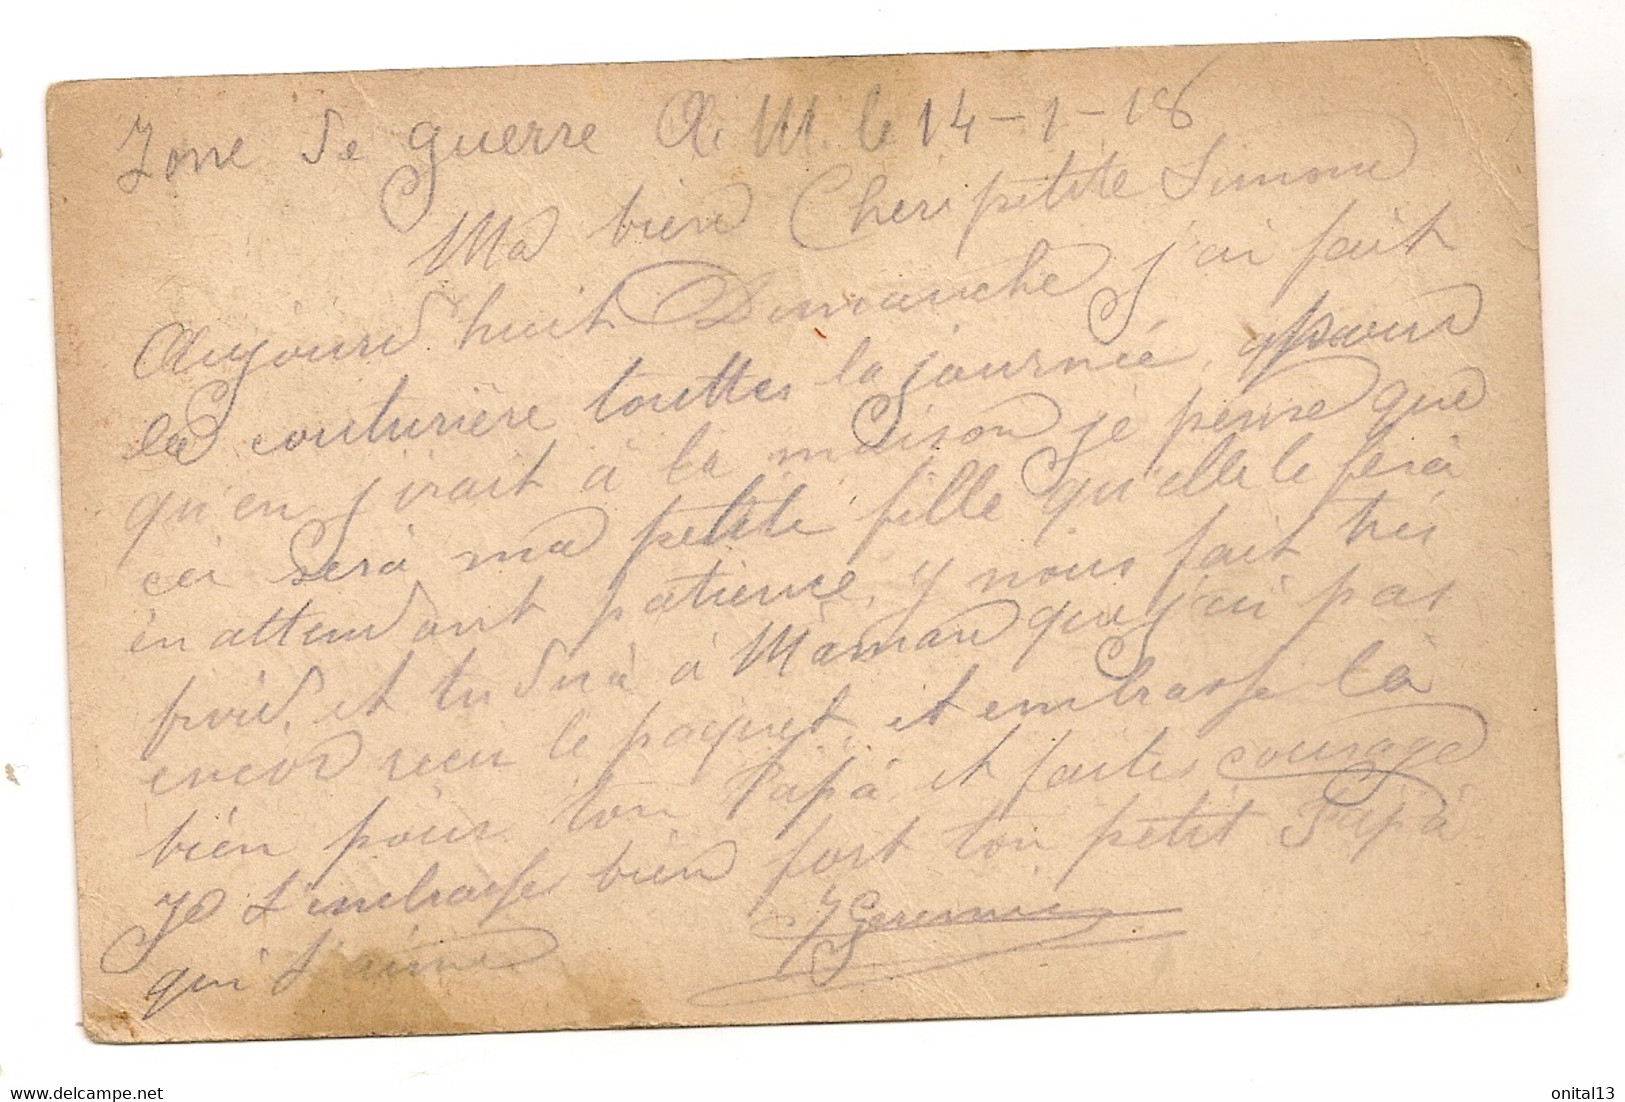 Zone de guerre A. M. le 14-1-18
Ma bien Cheri petite Simone
Aujourd huit Dimanche j'ai fait
la couturière touttes la journée,
qu'en j'irait à la maison je pense que
cei sera ma petite fille qu'elle le fera
en attendant patience, y nous fait très
froid, et tu dira à Maman que j'ai pas
encor recu le paquet, et embrasse là
bien pour ton Papà et faites courage
Je t'embrasse bien fort ton petit Papà
qui t'aime
onital13